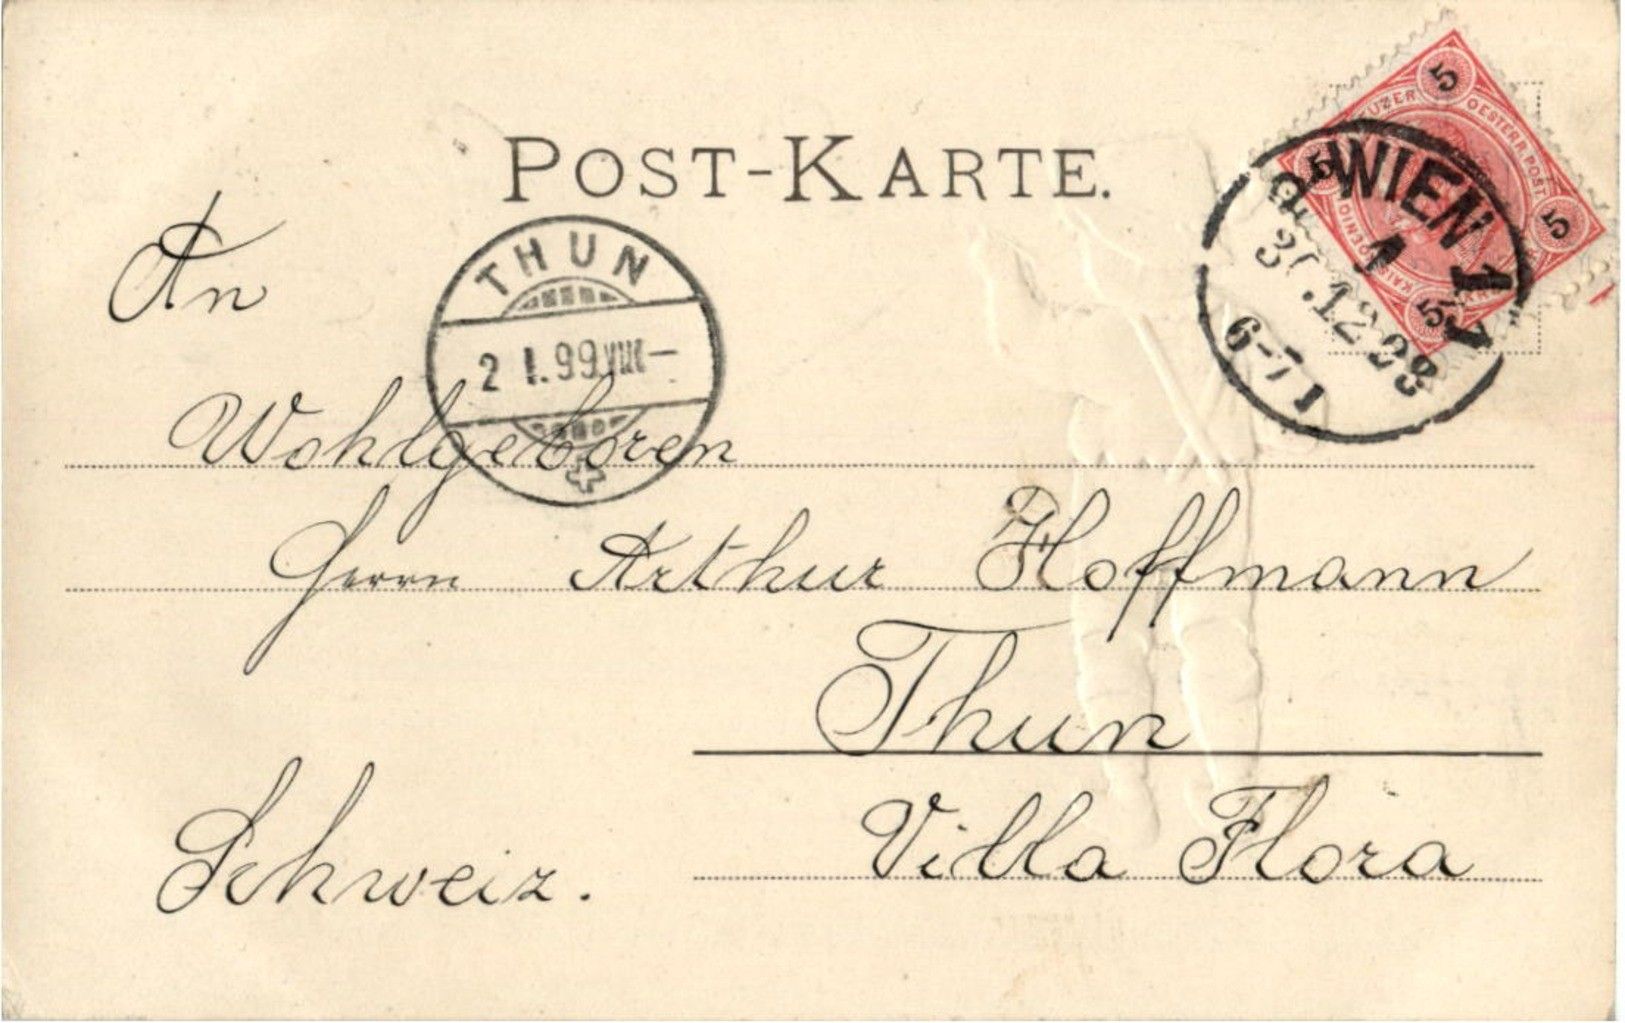 POST-KARTE.
5
OESTERR. POST
5
5
5
WIEN 1
1
30.12.98
6-7 1
THUN
2 I.99 VIII-
An
Wohlgeboren
Herrn Arthur Hoffmann
Thun
Villa Flora
Schweiz.